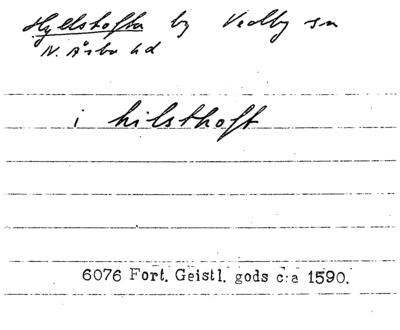 Hyllstofta by Vedby sn
N. Åsbo hd
i hilsthoft
6076 Fort. Geistl. gods c:a 1590.